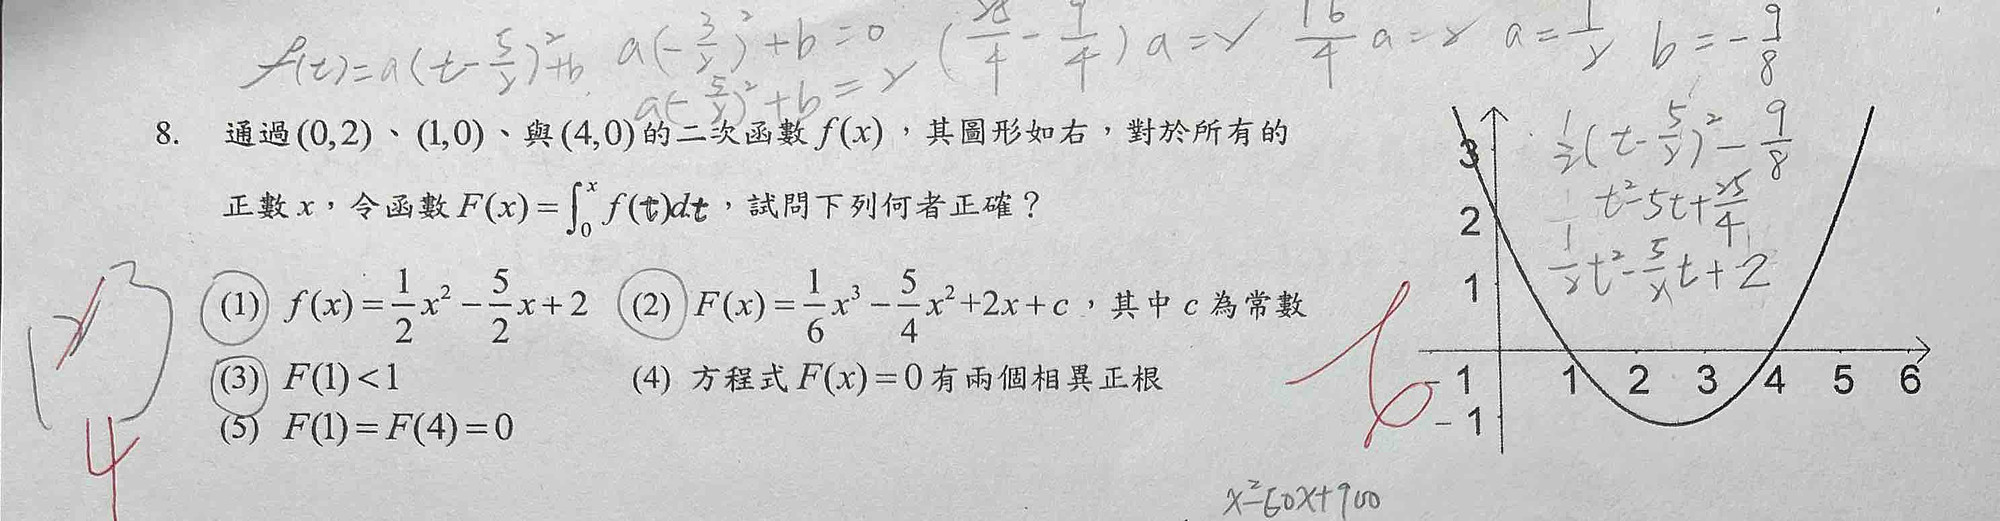 f(t)=a(t-5/2)²+b  a(-3/2)²+b=0  (25/4-9/4)a=2  16/4 a=2  a=1/2  b=-9/8
a(-5/2)²+b=2
8. 通過(0,2)、(1,0)、與(4,0)的二次函數f(x)，其圖形如右，對於所有的
正數x，令函數F(x)=∫₀ˣ f(t)dt，試問下列何者正確？
(1) f(x)=1/2x²-5/2x+2 (2) F(x)=1/6x³-5/4x²+2x+c，其中c為常數
(3) F(1)<1 (4) 方程式F(x)=0有兩個相異正根
(5) F(1)=F(4)=0
4
3
2
1
-1 1 2 3 4 5 6
-1
1/2(t-5/2)²-9/8
t²-5t+25/4
1/2t²-5/2t+2
x²-60x+900